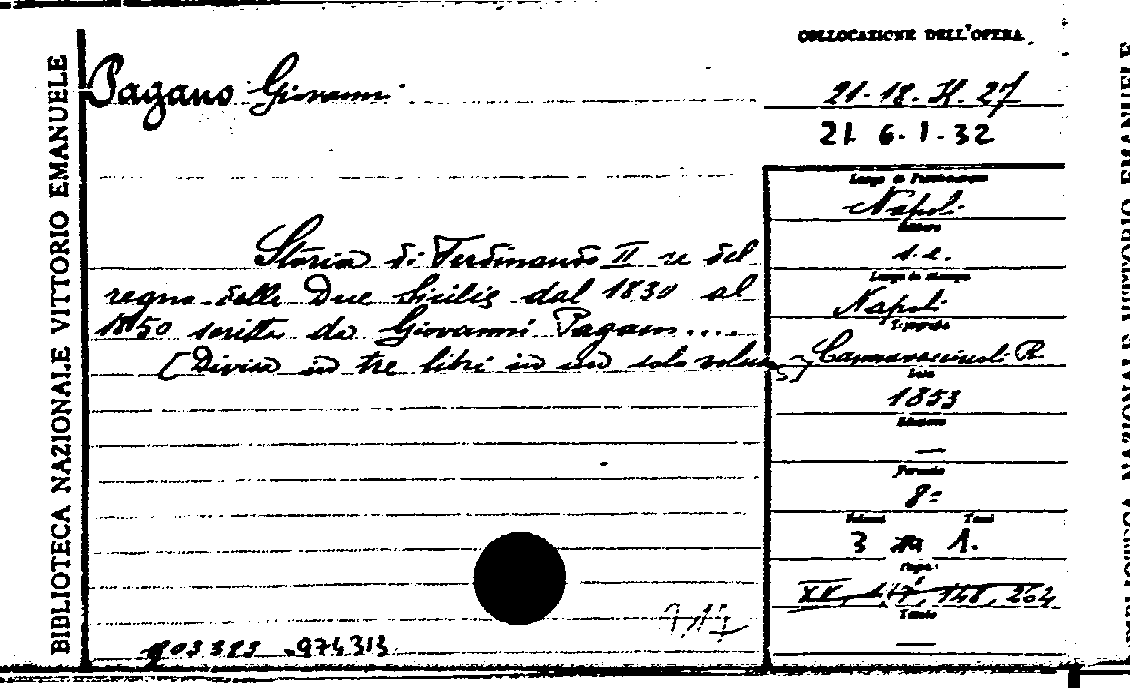 BIBLIOTECA NAZIONALE VITTORIO EMANUELE
COLLOCAZIONE DELL'OPERA
Pagano Giovanni
21-18. H. 27
21 6.1.32
Luogo di Pubblicazione
Napoli
Editore
s.e.
Luogo di stampa
Napoli
Tipografo
Cannavacciuoli P.
Data
1853
Edizione
—
Formato
8º
Volumi Tomi
3 in 1.
Pagg.
XV, 148, 264
Titolo
—
Storia di Ferdinando II re del
regno delle Due Sicilie dal 1830 al
1850 scritta da Giovanni Pagano....
(Divisa in tre libri in un solo volume)
903323 974313
BIBLIOTECA NAZIONALE VITTORIO EMANUELE